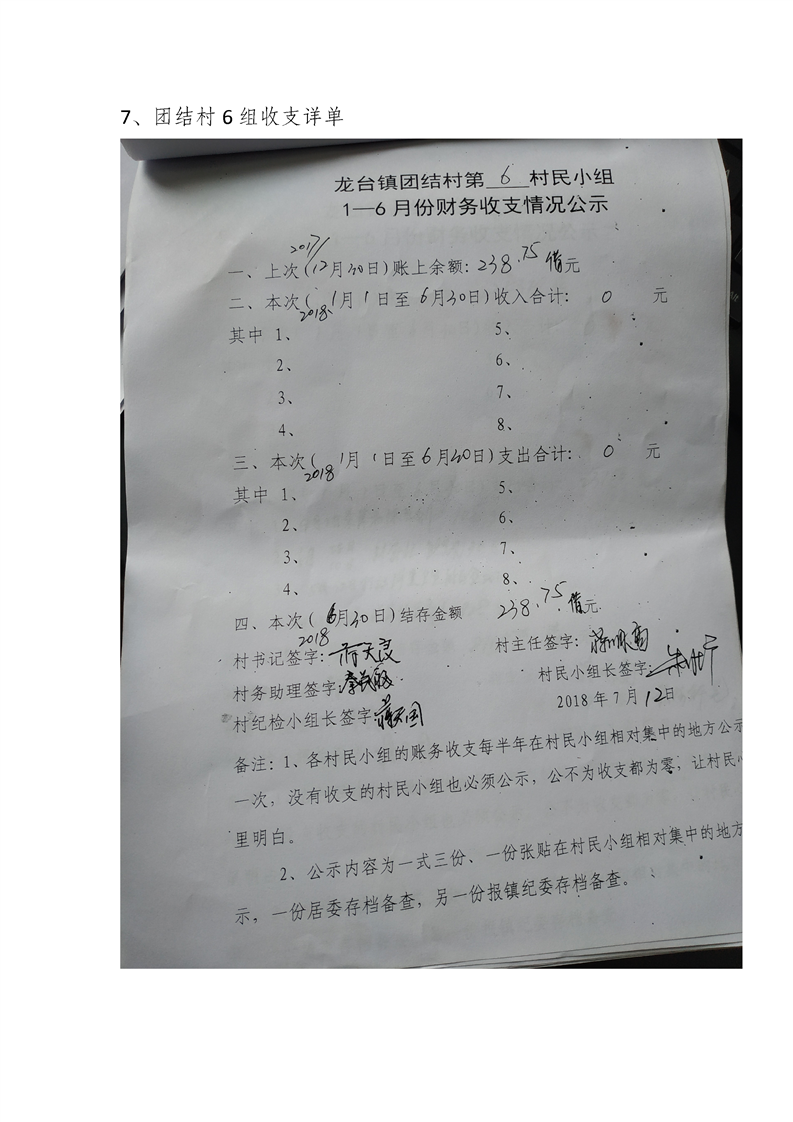 7、团结村 6 组收支详单
龙台镇团结村第 6 村民小组
1—6 月份财务收支情况公示
2017/
一、上次(12月30日)账上余额:238.75 借元
二、本次( 1月1日至6月30日)收入合计: 0 元
2018.
其中 1、 5、
2、 6、
3、 7、
4、 8、
三、本次( 1月1日至6月30日)支出合计: 0 元
2018
其中 1、 5、
2、 6、
3、 7、
4、 8、
四、本次( 6月30日)结存金额 238.75 借元
2018
村书记签字: 村主任签字:
村务助理签字: 村民小组长签字:
村纪检小组长签字: 2018 年 7 月 12日
备注:1、各村民小组的账务收支每半年在村民小组相对集中的地方公示
一次，没有收支的村民小组也必须公示，公不为收支都为零，让村民心
里明白。
2、公示内容为一式三份、一份张贴在村民小组相对集中的地方
示，一份居委存档备查，另一份报镇纪委存档备查。